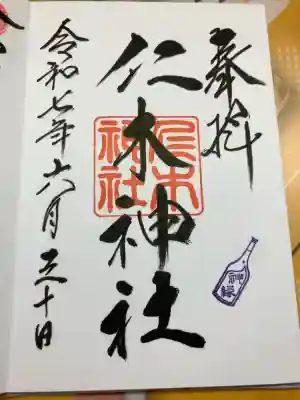 奉拝
仁木神社
仁木
神社
令和七年六月三十日